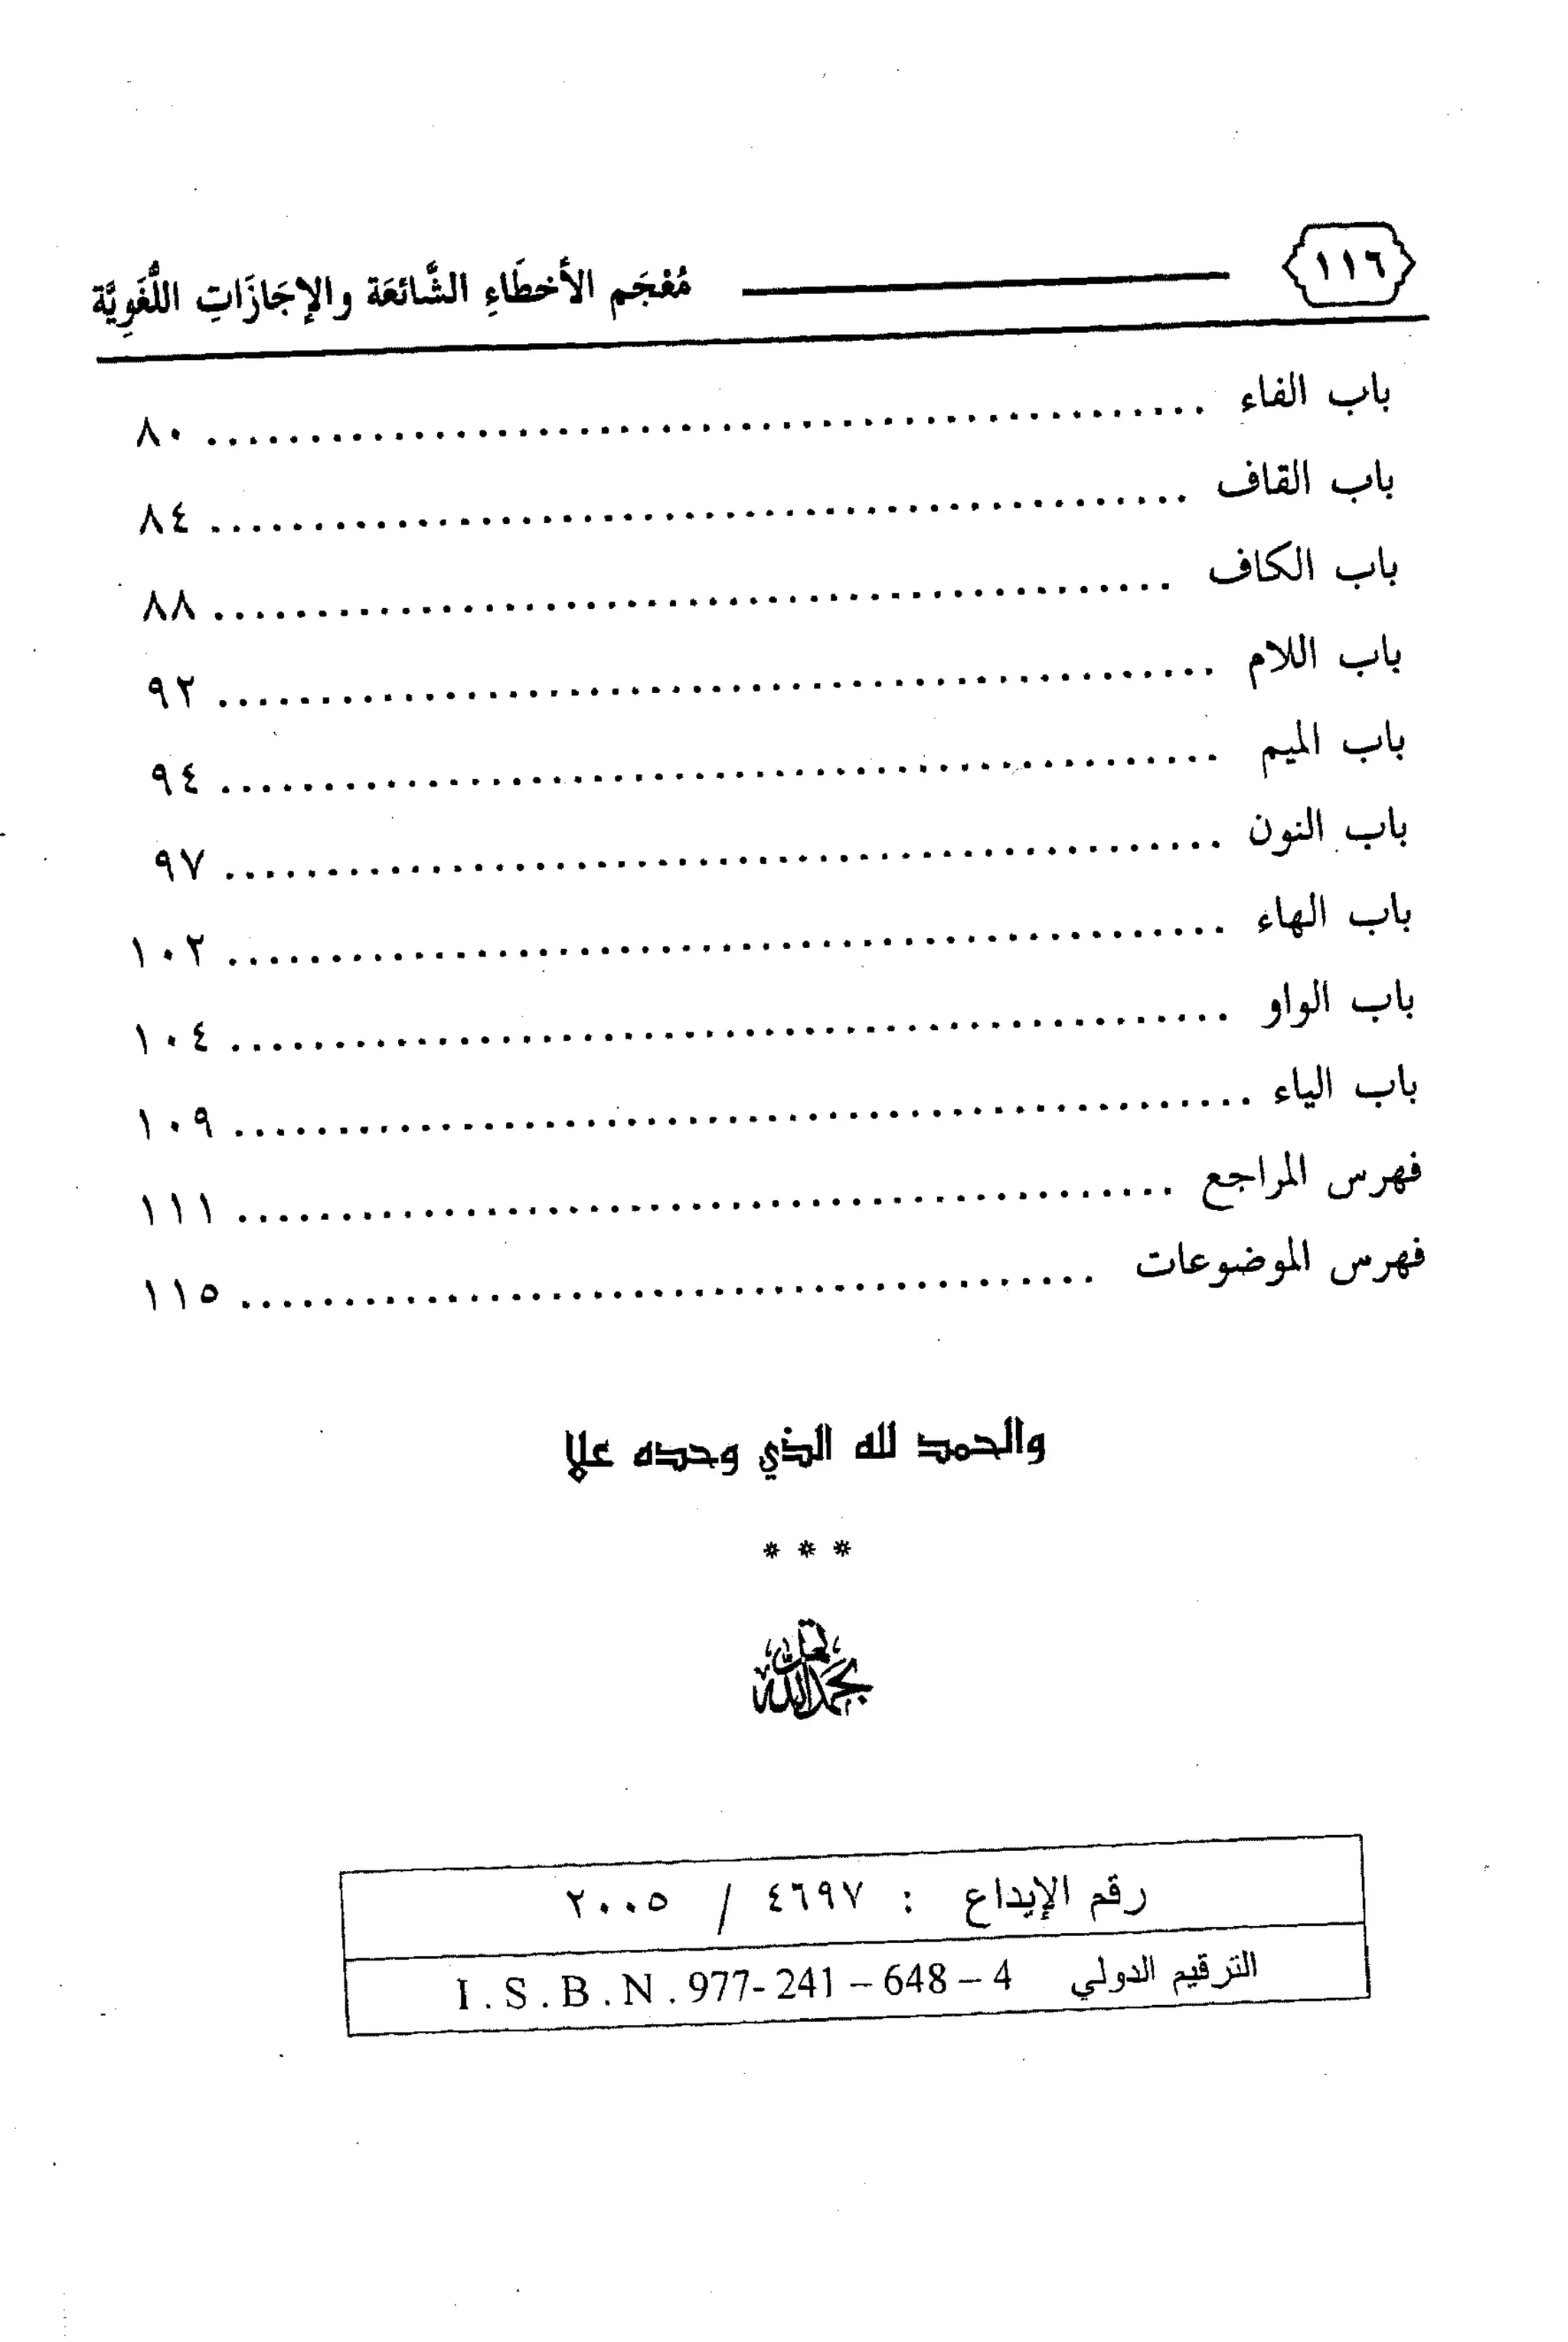 ١١٦ مُعْجَم الأخطَاءِ الشَّائعَة والإجَازَاتِ اللُّغَوِيَّة
باب الفاء ........ ٨٠
باب القاف ........ ٨٤
باب الكاف ........ ٨٨
باب اللام ........ ٩٢
باب الميم ........ ٩٤
باب النون ........ ٩٧
باب الهاء ........ ١٠٢
باب الواو ........ ١٠٤
باب الياء ........ ١٠٩
فهرس المراجع ........ ١١١
فهرس الموضوعات ........ ١١٥
والحمد لله الذي وحده علا
* * *
بحمد الله
رقم الإيداع : ٤٦٩٧ / ٢٠٠٥
الترقيم الدولي I.S.B.N.977-241-648-4